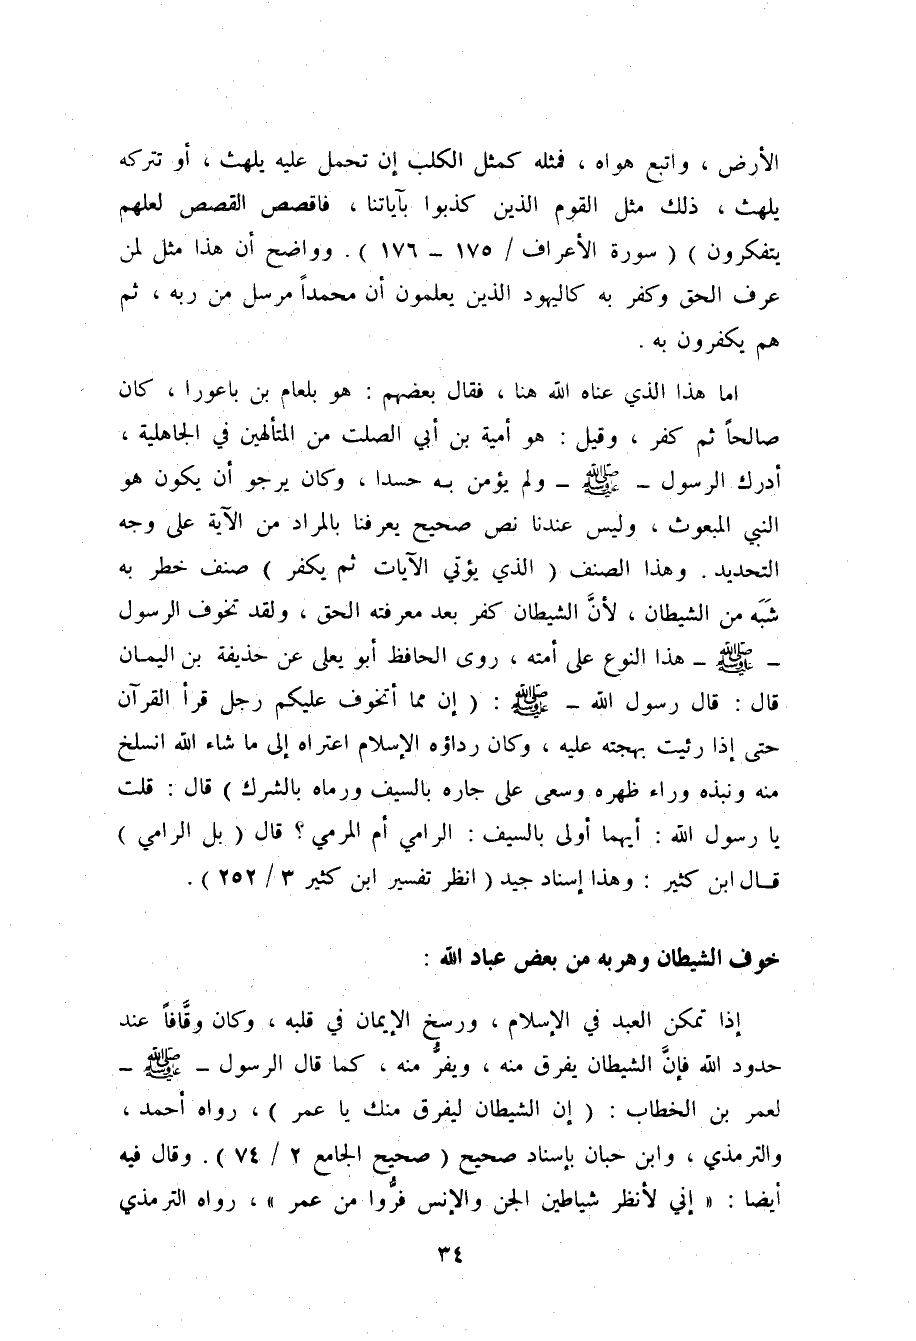 الأرض ، واتبع هواه ، فمثله كمثل الكلب إن تحمل عليه يلهث ، أو تتركه
يلهث ، ذلك مثل القوم الذين كذبوا بآياتنا ، فاقصص القصص لعلهم
يتفكرون ) ( سورة الأعراف / ١٧٥ – ١٧٦ ) . وواضح أن هذا مثل لمن
عرف الحق وكفر به كاليهود الذين يعلمون أن محمداً مرسل من ربه ، ثم
هم يكفرون به .
اما هذا الذي عناه الله هنا ، فقال بعضهم : هو بلعام بن باعورا ، كان
صالحاً ثم كفر ، وقيل : هو أمية بن أبي الصلت من المتألهين في الجاهلية ،
أدرك الرسول – ﷺ – ولم يؤمن به حسدا ، وكان يرجو أن يكون هو
النبي المبعوث ، وليس عندنا نص صحيح يعرفنا بالمراد من الآية على وجه
التحديد . وهذا الصنف ( الذي يؤتي الآيات ثم يكفر ) صنف خطر به
شَبَه من الشيطان ، لأنَّ الشيطان كفر بعد معرفته الحق ، ولقد تخوف الرسول
– ﷺ – هذا النوع على أمته ، روى الحافظ أبو يعلى عن حذيفة بن اليمان
قال : قال رسول الله – ﷺ : ( إن مما أتخوف عليكم رجل قرأ القرآن
حتى إذا رئيت بهجته عليه ، وكان رداؤه الإسلام اعتراه إلى ما شاء الله انسلخ
منه ونبذه وراء ظهره وسعى على جاره بالسيف ورماه بالشرك ) قال : قلت
يا رسول الله : أيهما أولى بالسيف : الرامي أم المرمي ؟ قال ( بل الرامي )
قال ابن كثير : وهذا إسناد جيد ( انظر تفسير ابن كثير ٣ / ٢٥٢ ) .
خوف الشيطان وهربه من بعض عباد الله :
إذا تمكن العبد في الإسلام ، ورسخ الإيمان في قلبه ، وكان وقَّافاً عند
حدود الله فإنَّ الشيطان يفرق منه ، ويفرُّ منه ، كما قال الرسول – ﷺ –
لعمر بن الخطاب : ( إن الشيطان ليفرق منك يا عمر ) ، رواه أحمد ،
والترمذي ، وابن حبان بإسناد صحيح ( صحيح الجامع ٢ / ٧٤ ) . وقال فيه
أيضا : « إني لأنظر شياطين الجن والإنس فرُّوا من عمر » ، رواه الترمذي
٣٤